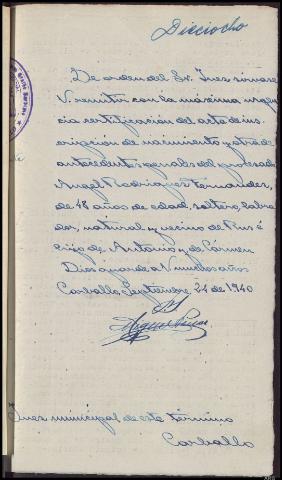 Dieciocho
De orden del Sr. Juez sirvase
V. remitir con la máxima urgen
cia certificación del acta de ins
cripción de nacimiento y otra de
antecedentes penales del procesado
Angel Rodriguez Fernandez,
de 48 años de edad, soltero, labra
dor, natural y vecino de Rus é
hijo de Antonio y de Cármen
Dios guarde a V muchos años
Carballo Septiembre 24 de 1940
Juez municipal de este término
Carballo